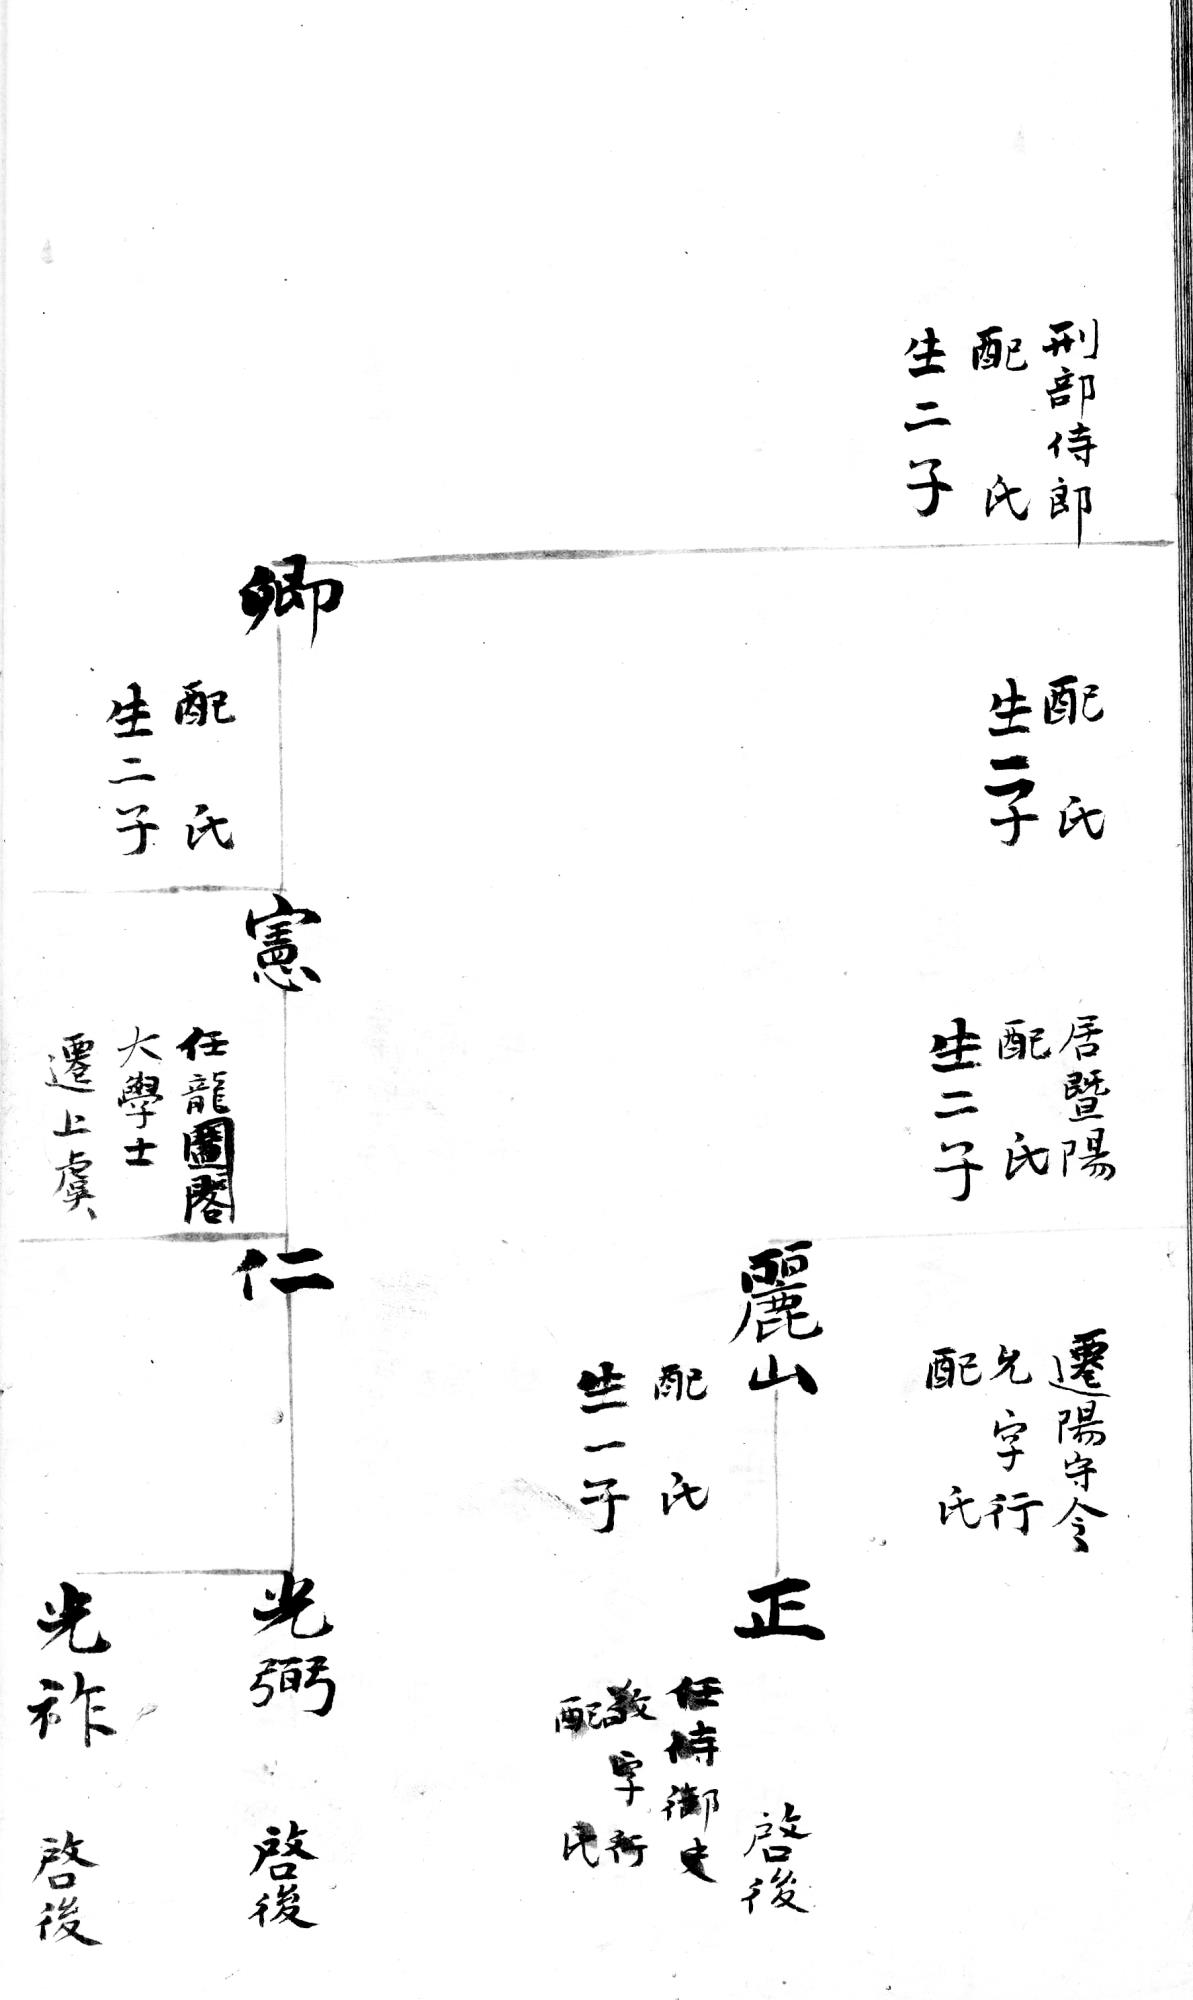 刑部侍郎
配 氏
生二子
配 氏
生二子
卿
配 氏
生二子
居暨陽
配 氏
生二子
憲
任龍圖閣
大學士
遷上虞
遷陽守令
允字行
配 氏
麗山
配 氏
生一子
仁
正
任侍御史
敬字行
配 氏
啓後
光弼
啓後
光祚
啓後